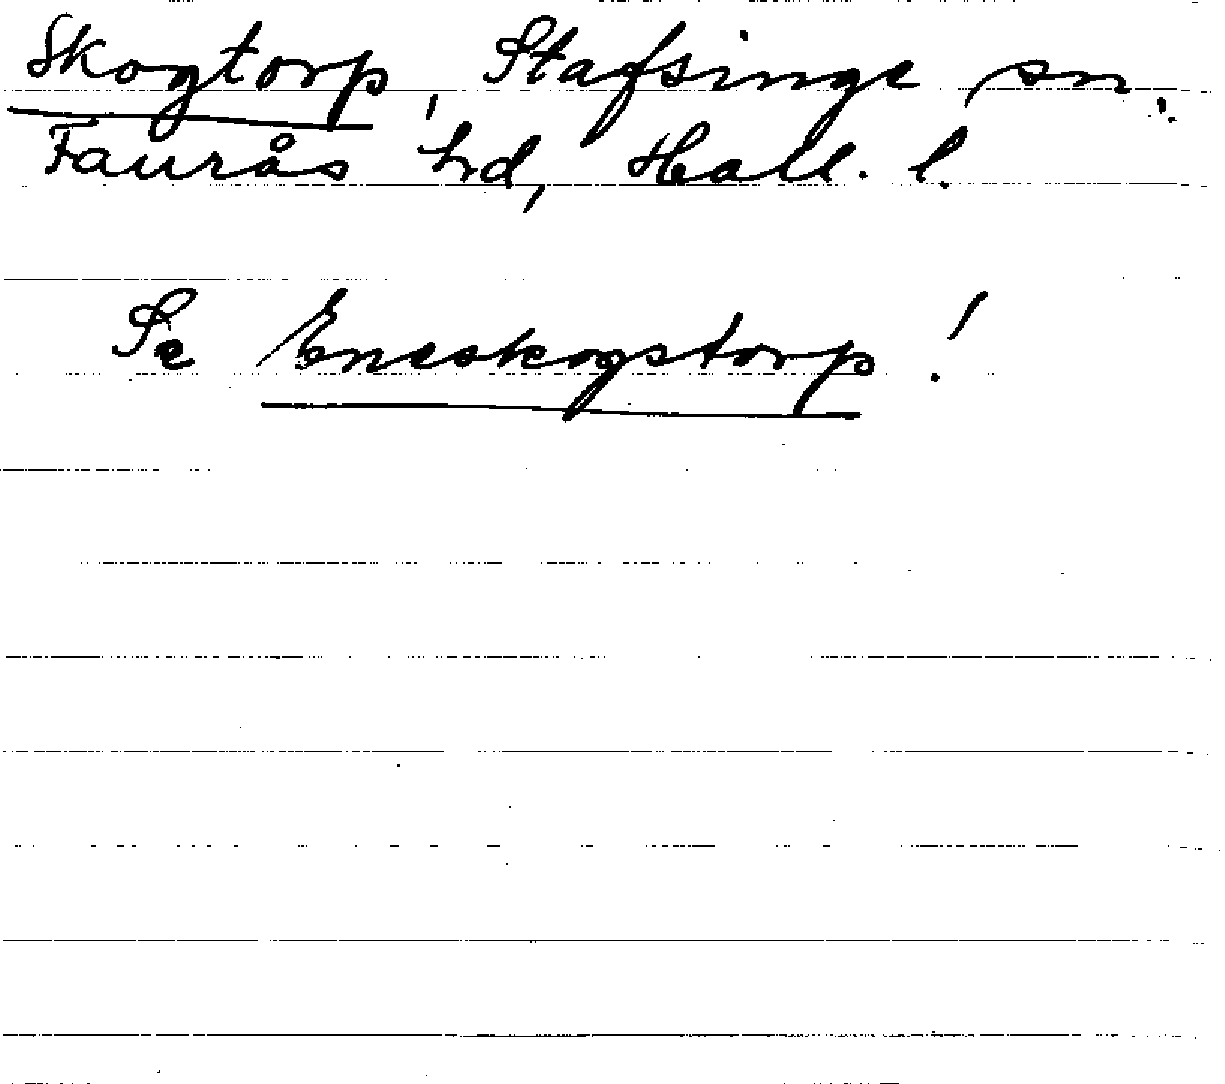 Skogtorp, Stafsinge sn.
Faurås hd, Hall. l.
Se Eneskogstorp!